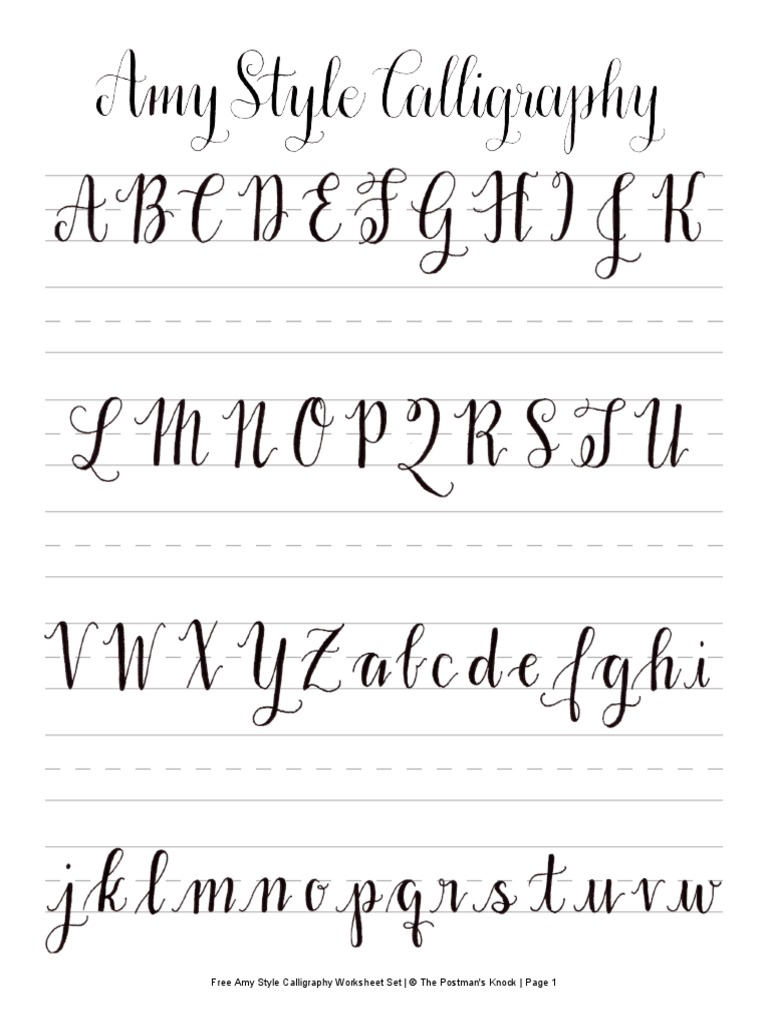 Amy Style Calligraphy
A B C D E F G H I J K
L M N O P Q R S T U
V W X Y Z a b c d e f g h i
j k l m n o p q r s t u v w
Free Amy Style Calligraphy Worksheet Set | © The Postman's Knock | Page 1